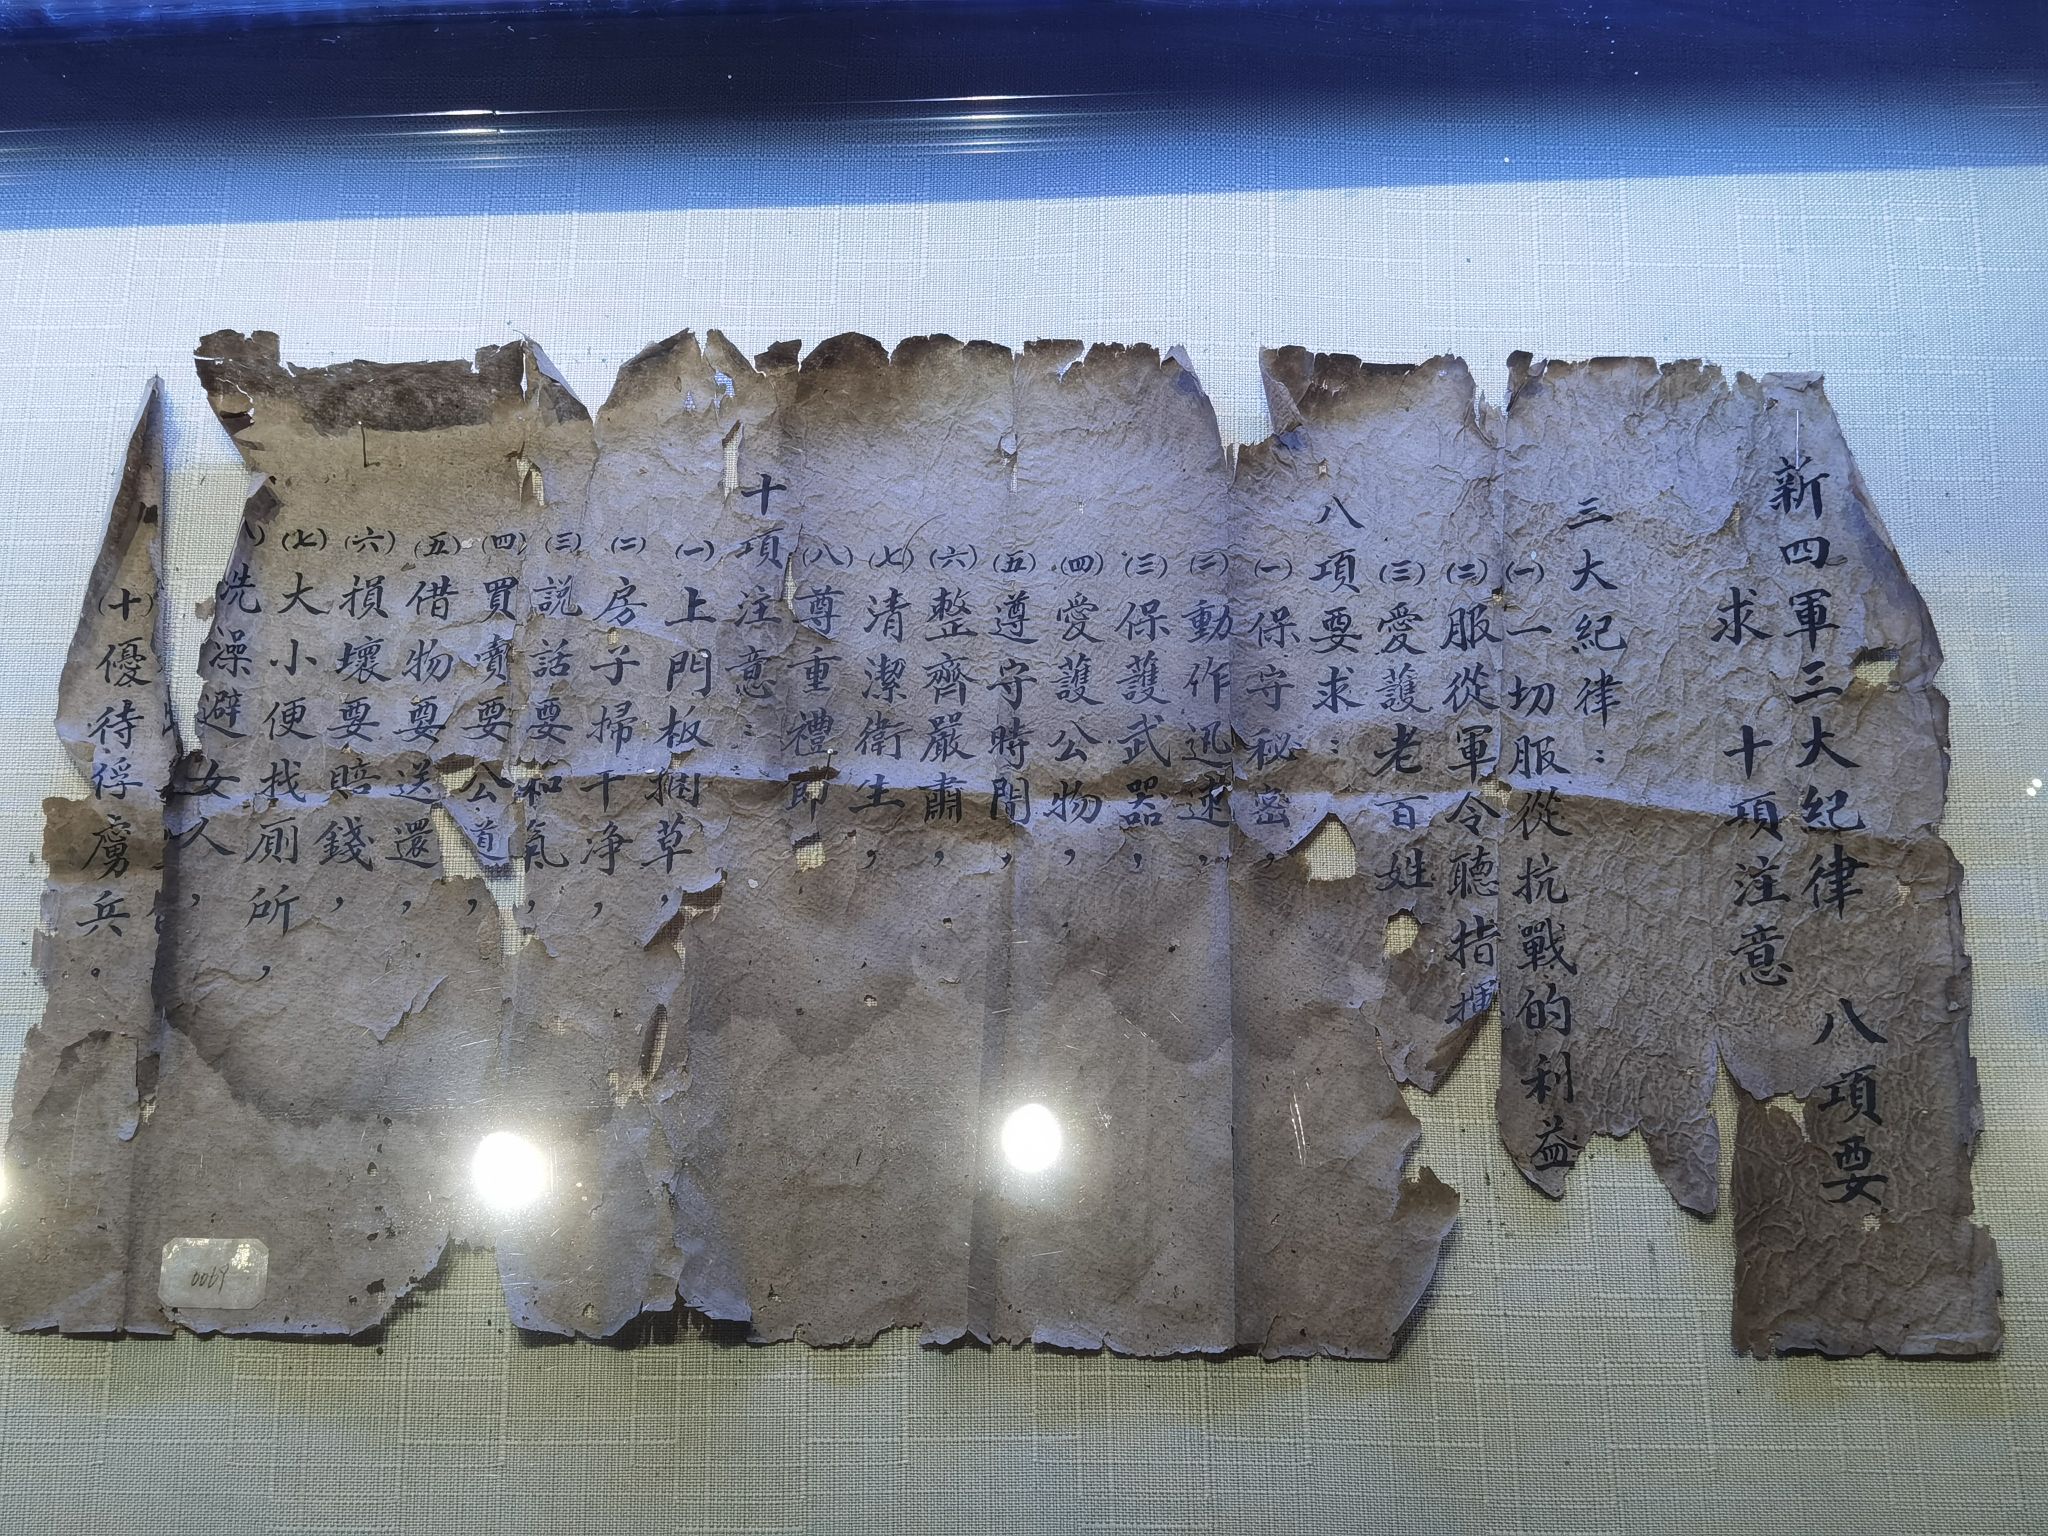 新四軍三大紀律 八項要
求 十項注意
三大紀律：
(一)一切服從抗戰的利益
(二)服從軍令聽指揮
(三)愛護老百姓
八項要求：
(一)保守秘密，
(二)動作迅速，
(三)保護武器，
(四)愛護公物，
(五)遵守時間，
(六)整齊嚴肅，
(七)清潔衛生，
(八)尊重禮節
十項注意：
(一)上門板捆草，
(二)房子掃干净，
(三)説話要和氣，
(四)買賣要公道，
(五)借物要送還，
(六)損壞要賠錢，
(七)大小便找厠所，
洗澡避女人，
(十)優待俘虜兵。
0069